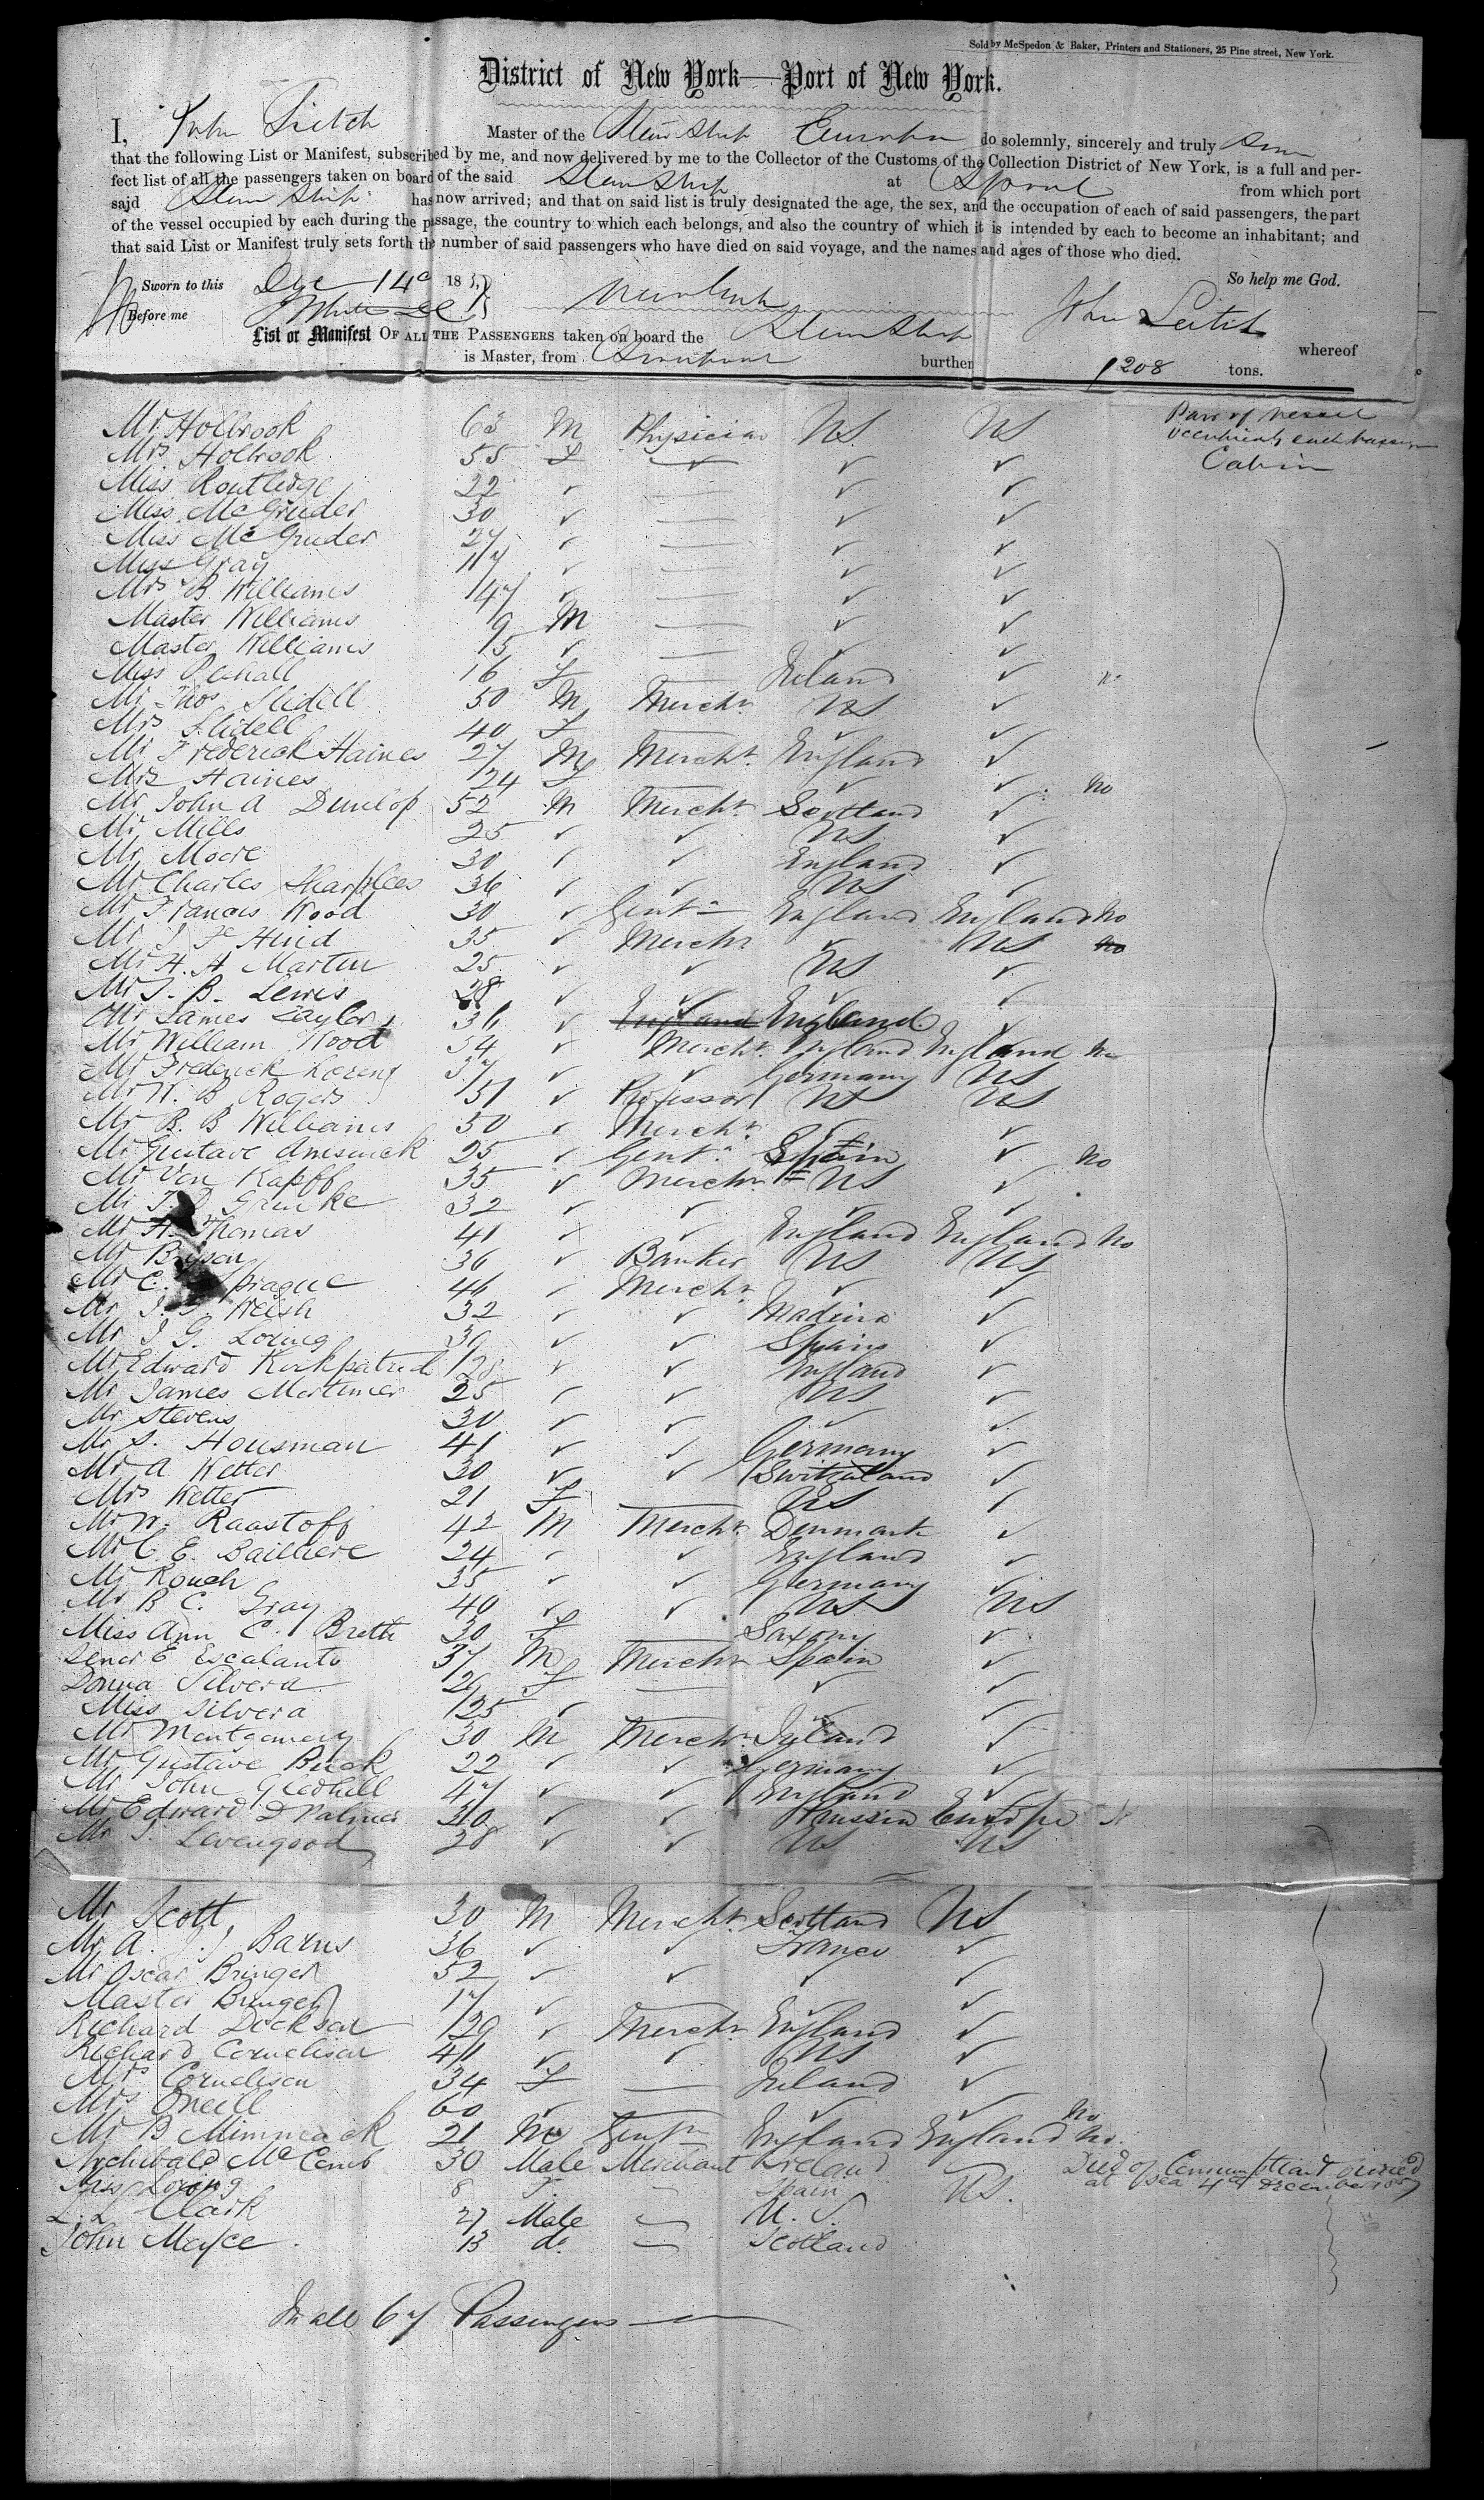 Sold by McSpedon & Baker, Printers and Stationers, 25 Pine street, New York.
District of New York—Port of New York.
I, John Leitch Master of the Steam Ship Europa do solemnly, sincerely and truly
that the following List or Manifest, subscribed by me, and now delivered by me to the Collector of the Customs of the Collection District of New York, is a full and per-
fect list of all the passengers taken on board of the said Steam Ship at Lpool from which port
said Steam Ship has now arrived; and that on said list is truly designated the age, the sex, and the occupation of each of said passengers, the part
of the vessel occupied by each during the passage, the country to which each belongs, and also the country of which it is intended by each to become an inhabitant; and
that said List or Manifest truly sets forth the number of said passengers who have died on said voyage, and the names and ages of those who died.
So help me God.
Sworn to this Dec 14 185
Before me John Leitch
List or Manifest OF ALL THE PASSENGERS taken on board the Steam Ship whereof
is Master, from Liverpool burthen 1208 tons.
Part of vessel
occupied by each passenger
Mr Holbrook 63 M Physician US US
Mrs Holbrook 55 F ✓ ✓ ✓ Cabin
Miss Routledge 22 ✓ — ✓ ✓
Miss McGruder 30 ✓ — ✓ ✓
Miss McGruder 27 ✓ — ✓ ✓
Miss Gray 17 ✓ — ✓ ✓
Mrs B Williams 47 ✓ — ✓ ✓
Master Williams 9 M — ✓ ✓
Master Williams 5 ✓ — ✓ ✓
Miss 16 F Ireland ✓
Mr Thos Slidell 50 M Mercht US ✓
Mrs Slidell 40 F — ✓ ✓
Mr Frederick Haines 27 M Mercht England ✓
Mrs Haines 24 F — ✓ ✓ no
Mr John A Dunlop 52 M Mercht Scotland ✓
Mr Mills 25 ✓ ✓ US ✓
Mr Moore 30 ✓ ✓ England ✓
Mr Charles Sharplees 36 ✓ ✓ US ✓
Mr Francis Wood 30 ✓ Gentn England England no
Mr J F Hind 35 ✓ Mercht ✓ US no
Mr H. A Martin 25 ✓ ✓ US ✓
Mr J. B. Lewis 28 ✓ ✓ ✓ ✓
Mr James Taylor 36 ✓ England England ✓
Mr William Wood 54 ✓ Mercht England England no
Mr Frederick Lorenz 37 ✓ ✓ Germany US
Mr W. B Rogers 51 ✓ Professor US US
Mr B. B Williams 50 ✓ Mercht ✓ ✓
Mr Gustave Amsinck 25 ✓ Gent Spain ✓ no
Mr Von Kapff 35 ✓ Mercht US ✓
Mr 32 ✓ ✓ ✓ ✓
Mr H. Thomas 41 ✓ ✓ England England no
Mr Bryson 36 ✓ Banker US US
Mr C. Sprague 46 ✓ Mercht ✓ ✓
Mr J. Welsh 32 ✓ ✓ Madeira ✓
Mr J G. Loring 39 ✓ ✓ Spain ✓
Mr Edward Kirkpatrick 28 ✓ ✓ England ✓
Mr James Mortimer 25 ✓ ✓ US ✓
Mr Stevens 30 ✓ ✓ ✓ ✓
Mr S. Housman 41 ✓ ✓ Germany ✓
Mr A Wetter 30 ✓ ✓ Switzerland ✓
Mrs Wetter 21 F — US ✓
Mr W. Raastoff 42 M Mercht Denmark ✓
Mr C. E. Bailliere 24 ✓ ✓ England ✓
Mr Rouch 35 ✓ ✓ Germany ✓
Mr B C. Gray 40 ✓ ✓ US US
Miss Ann C. Breth 30 F — Saxony ✓
Senor E Escalanto 37 M Mercht Spain ✓
Donna Silvera 26 F — ✓ ✓
Miss Silvera 25 ✓ ✓ ✓
Mr Montgomery 30 M Mercht Ireland ✓
Mr Gustave Buck 22 ✓ ✓ Germany ✓
Mr John Gledhill 47 ✓ ✓ England ✓
Mr Edward D Palmer 30 ✓ ✓ Prussia Europe
Mr J. Levengood 28 ✓ ✓ US US
Mr Scott 30 M Mercht Scotland US
Mr A. J. Barus 36 ✓ ✓ France ✓
Mr Oscar Bringer 52 ✓ ✓ ✓ ✓
Master Bringer 17 ✓ — ✓ ✓
Richard Dickson 29 ✓ Mercht England ✓
Richard Cornelison 41 ✓ ✓ US ✓
Mrs Cornelison 34 F — Ireland ✓
Mrs Oneill 60 ✓ ✓ ✓ no
Mr B Mimmack 21 M Gentn England England no.
Archibald McComb 30 Male Merchant Ireland Died of Consumption
Miss Loring 8 F. — Spain US. at Sea 4th December
L. L Clark 27 Male — U. S.
John Mayce. 13 do — Scotland
In all 67 Passengers